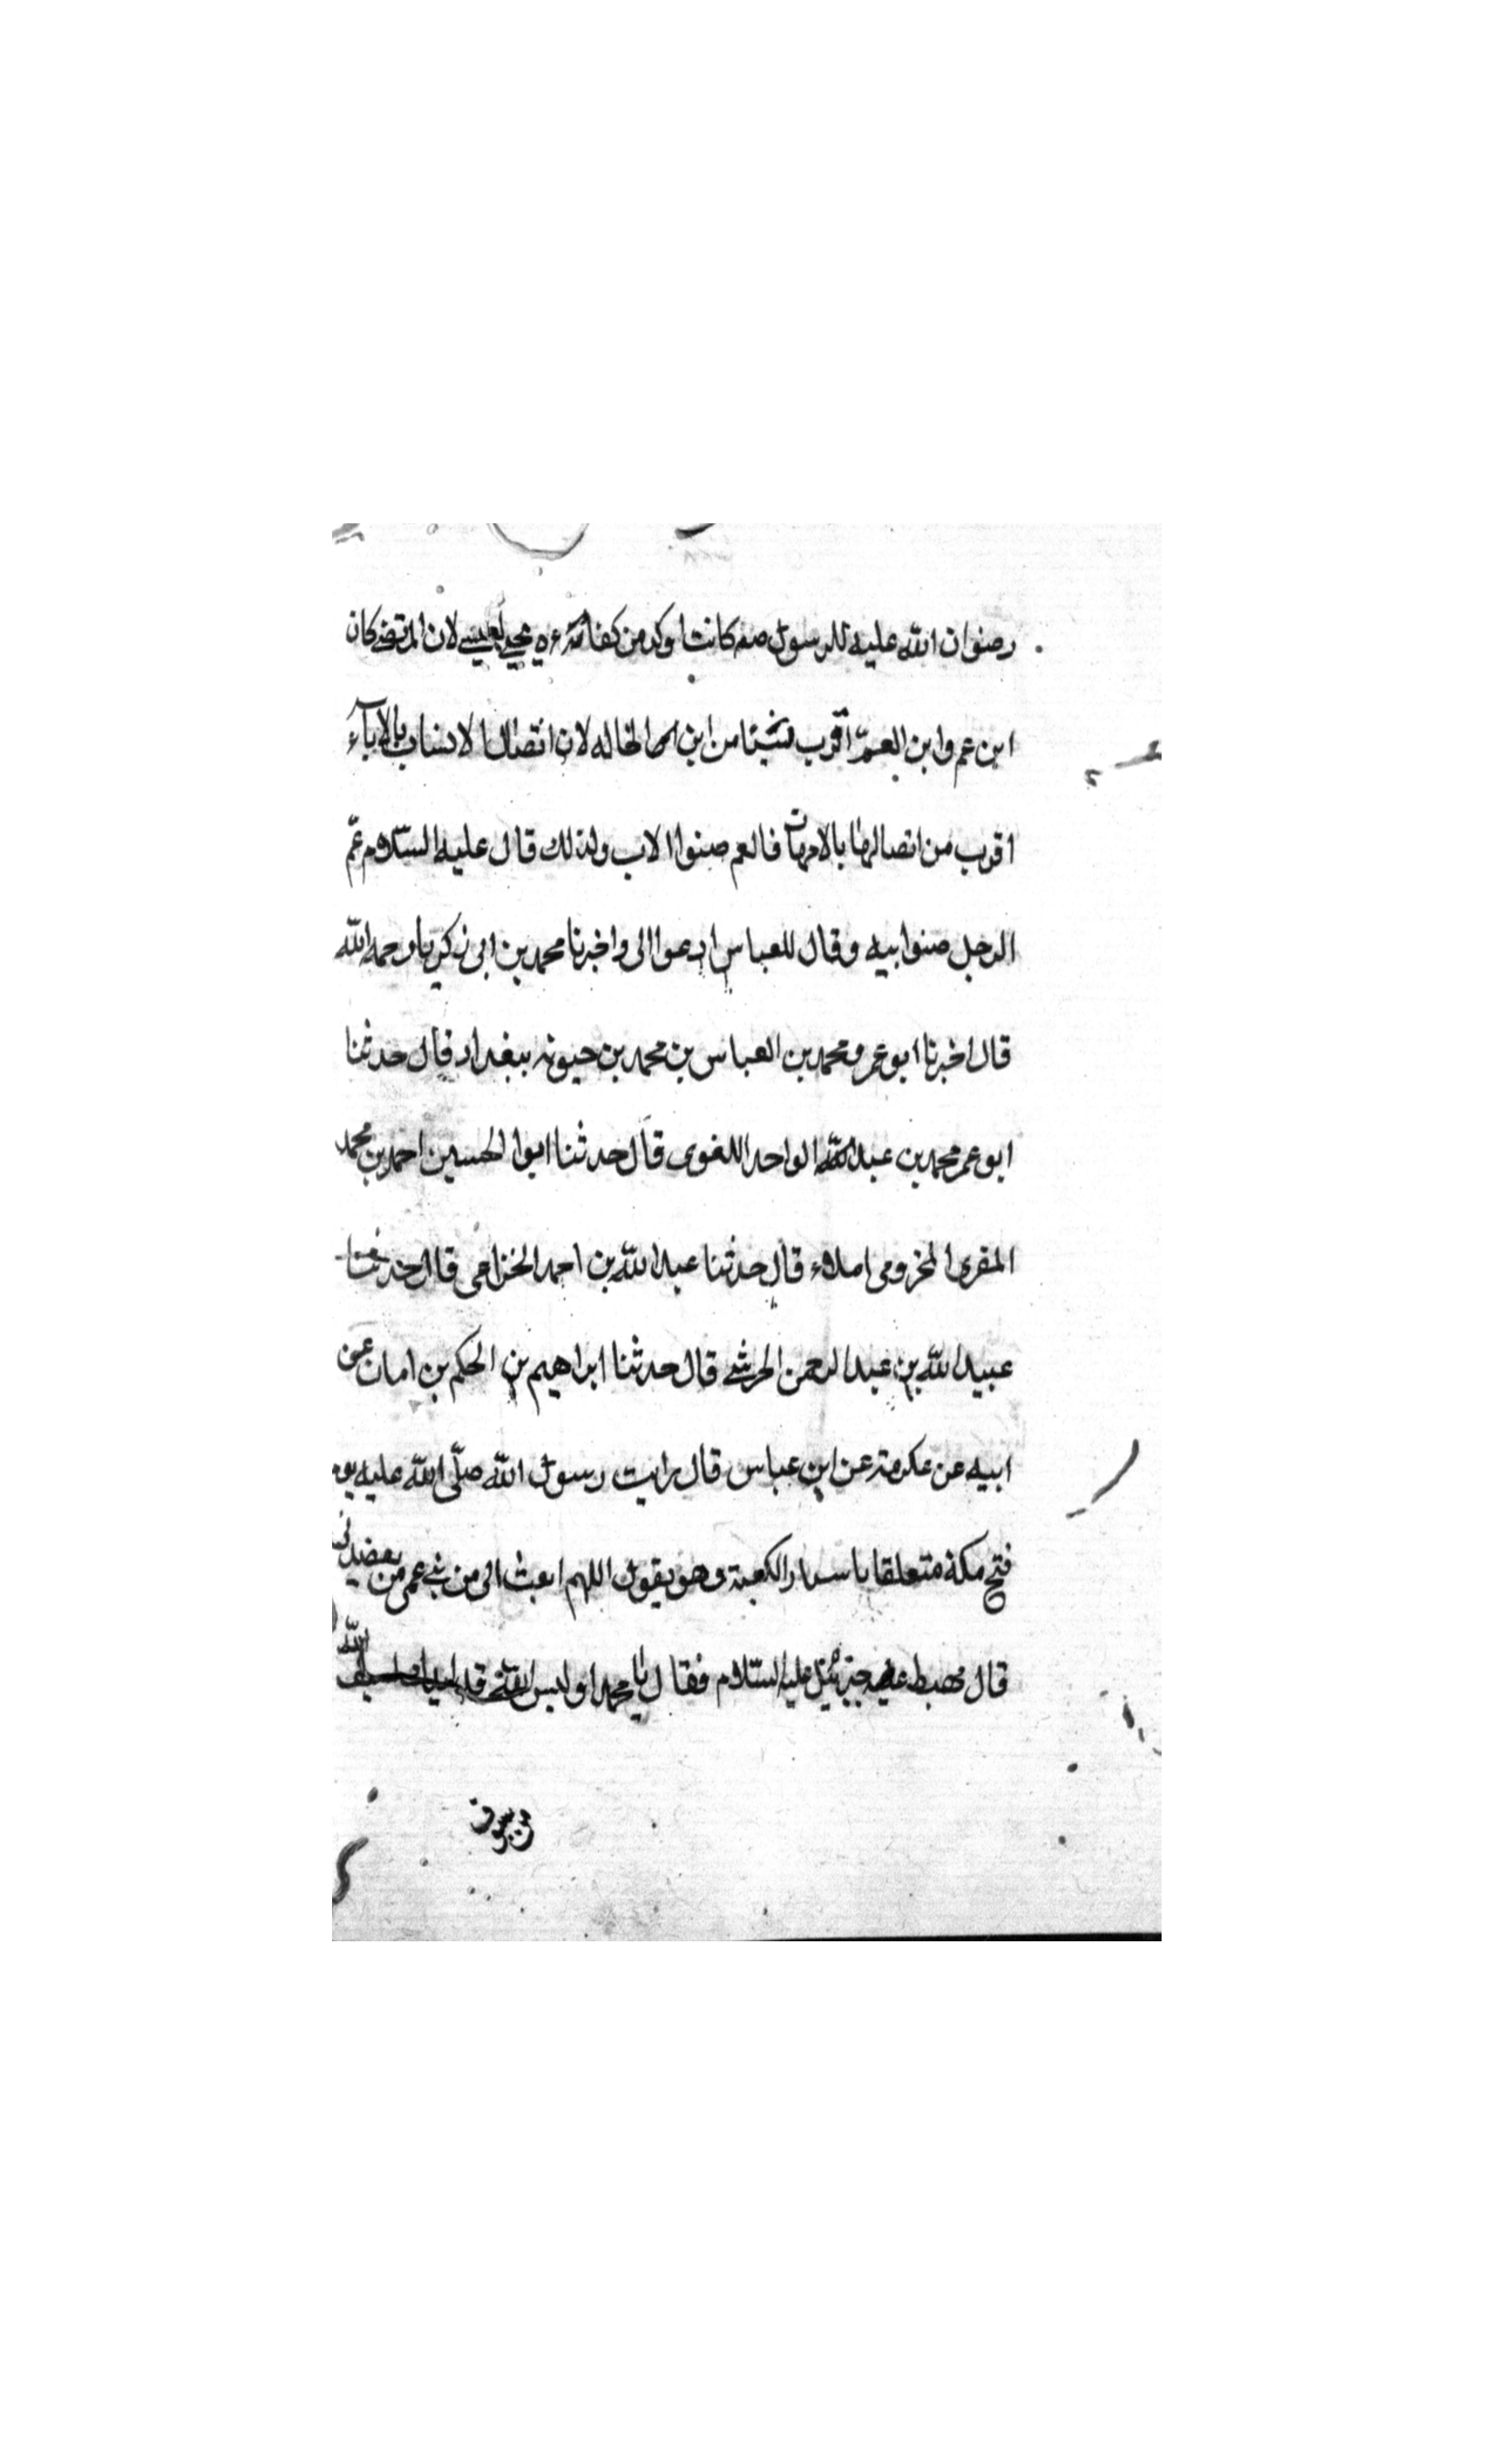 رضوان الله عليه للرسول صعم كانت اوكد من كفالة يحيى لعيسى لان المرتضى كان
ابن عم وابن العم اقرب من ابن الخاله لان اتصال الانساب بالاباء
اقرب من اتصالها بالامهات فالعم صنوا الاب ولذلك قال عليه السلام عم
الرجل صنوابيه وقال للعباس ادعوا الى واخبرنا محمد بن ابى زكريا رحمه الله
قال اخبرنا ابو عمرو محمد بن العباس بن محمد بن حيويه ببغداد قال حدثنا
ابو عمر محمد بن عبد الواحد اللغوى قال حدثنا ابوا الحسين احمد بن محمد
المقرى المخزومى املاء قال حدثنا عبد الله بن احمد الخزاعى قال حدثنا
عبيد الله بن عبد الرحمن الحرشى قال حدثنا ابراهيم بن الحكم بن امان عن
ابيه عن عكرمة عن ابن عباس قال رايت رسول الله صلى الله عليه يوم
فتح مكة متعلقا باستار الكعبة وهو يقول اللهم ابعث الى من بنى عمى من يعضدنى
قال فهبط عليه جبرئيل عليه السلام فقال يا محمد اوليس قد الله